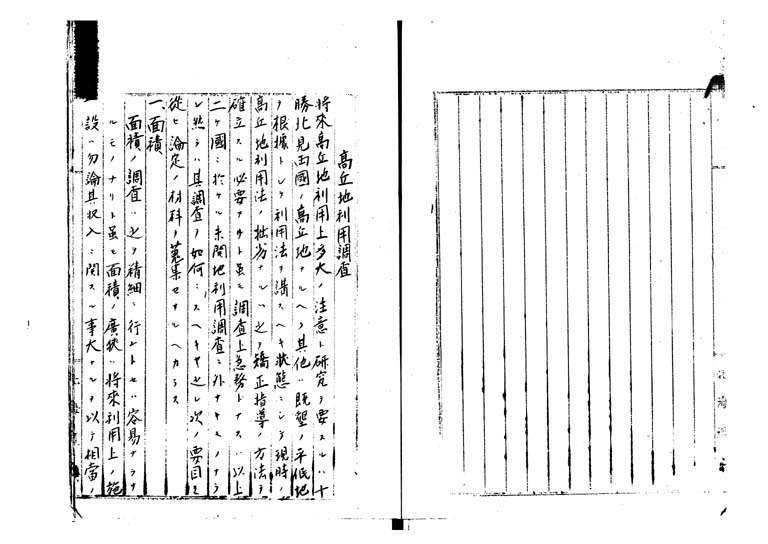 高丘地利用調査
将来高丘地利用上多大ノ注意ト研究ヲ要スルハ十
勝北見両國ノ高丘地ナルヘク其他ハ既墾ノ平低地
ヲ根據トシテ利用法ヲ講スヘキ状態ニシテ現時ノ
高丘地利用法ノ拙劣ナルハ之ヲ矯正指導ノ方法ヲ
確立スル必要アリト虽モ調査上急務トナスハ以上
二ケ國ニ於ケル未開地利用調査ニ外ナキモノナラ
ン然ラハ其調査ノ如何ニスヘキヤ之レ次ノ要目ニ
従ヒ論定ノ材料ヲ蒐集セサルヘカラス
一、面積
面積ノ調査ハ之ヲ精細ニ行ハントセハ容易ナラサ
ルモノナリト虽モ面積ノ廣狭ハ将來利用上ノ施
設ハ勿論其収入ニ関スル事大ナルヲ以テ相當ノ